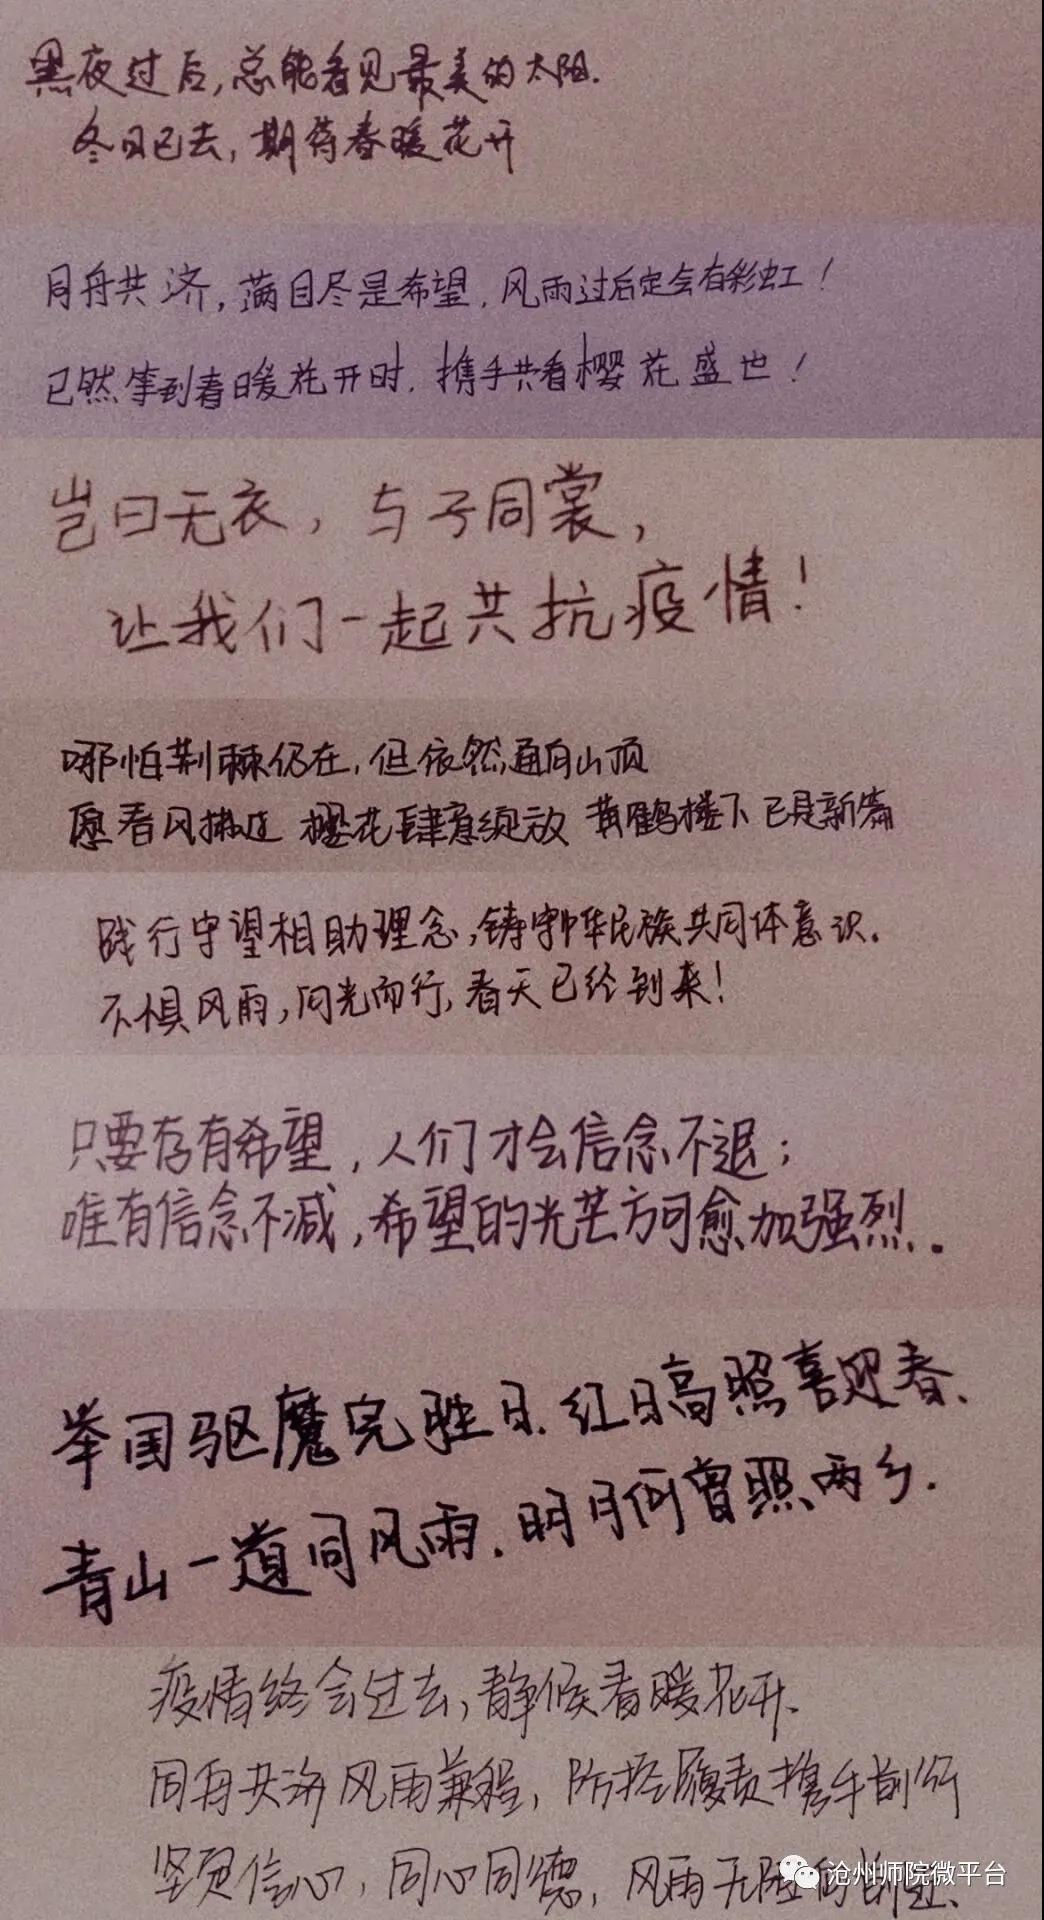 黑夜过后,总能看见最美的太阳.
冬日已去,期待春暖花开
同舟共济,满目尽是希望,风雨过后定会有彩虹!
已然等到春暖花开时,携手共看樱花盛世!
岂曰无衣,与子同裳,
让我们一起共抗疫情!
哪怕荆棘仍在,但依然通向山顶
愿春风拂过 樱花肆意绽放 黄鹤楼下已是新篇
践行守望相助理念,铸牢中华民族共同体意识.
不惧风雨,向光而行,春天已经到来!
只要存有希望,人们才会信念不退;
唯有信念不减,希望的光芒方可愈加强烈.
举国驱魔完胜日.红日高照喜迎春.
青山一道同风雨.明月何曾照两乡.
疫情终会过去,静候春暖花开.
同舟共济风雨兼程,防控履责携手前行
坚定信心,同心同德,风雨无阻向前进.
沧州师院微平台